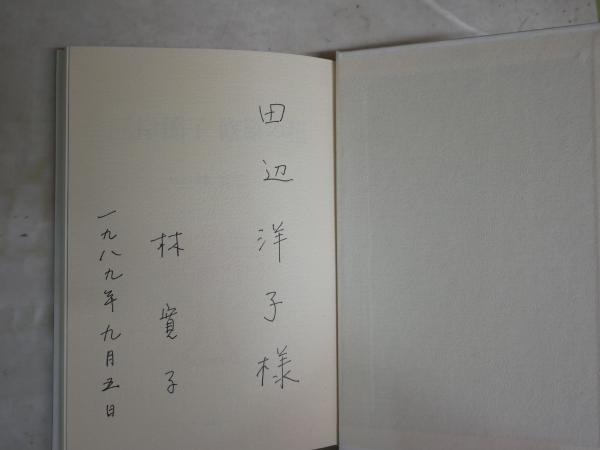 田辺洋子様
林寛子
一九八九年九月五日